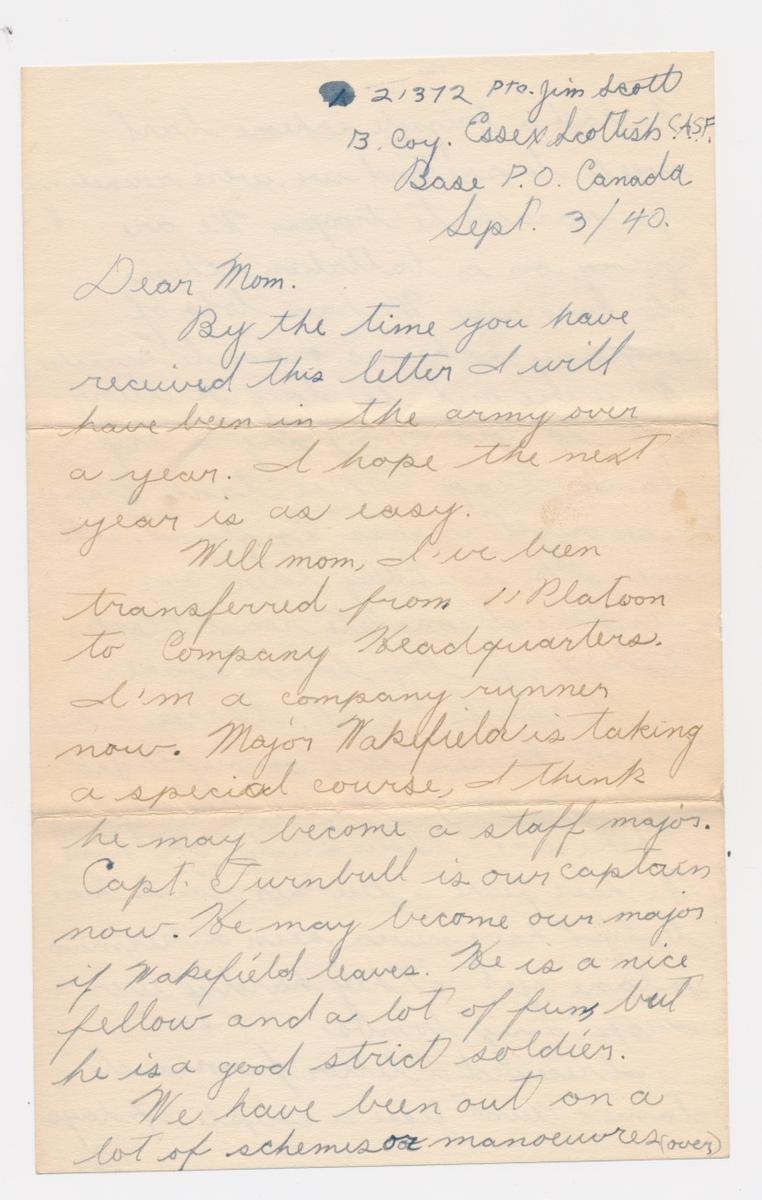 A 21372 Pte. Jim Scott
B. Coy. Essex Scottish C.A.S.F.
Base P.O. Canada
Sept. 3/40.
Dear Mom.
By the time you have
received this letter I will
have been in the army over
a year. I hope the next
year is as easy.
Well mom, I've been
transferred from 11 Platoon
to Company Headquarters.
I'm a company runner
now. Major Wakefield is taking
a special course, I think
he may become a staff major.
Capt. Turnbull is our captain
now. He may become our major
if Wakefield leaves. He is a nice
fellow and a lot of fun, but
he is a good strict soldier.
We have been out on a
lot of schemes or manoeuvres (over)